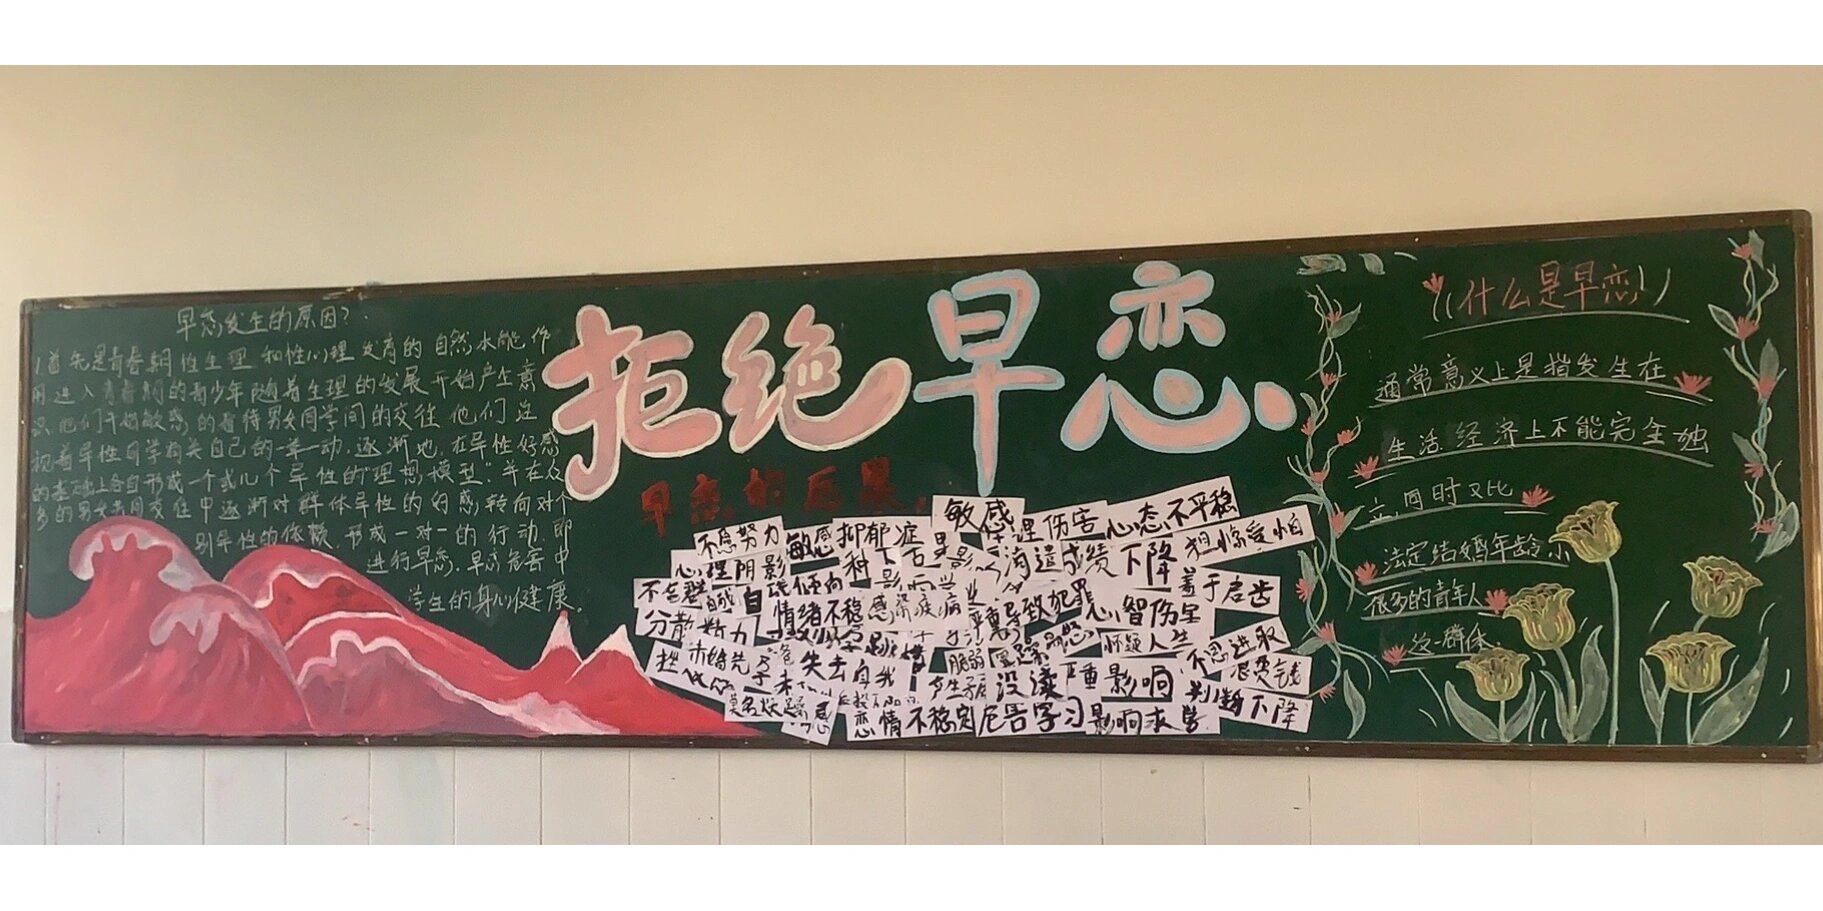 早恋发生的原因?
1首先是青春期性生理和性心理发育的自然水能作
用进入青春期的青少年随着生理的发展开始产生意
识他们开始敏感的看待男女同学间的交往他们注
视着异性同学有关自己的一举一动,逐渐地,在异性好感
的基础上各自形成一个或几个异性的"理想模型",并在众
多的男女共同交往中逐渐对群体异性的好感,转向对个
别异性的依赖,形成一对一的行动,即
进行早恋,早恋危害中
学生的身心健康。
拒绝早恋
早恋的后果
敏感
心理伤害
心态不平稳
不思努力
敏感
抑郁症
心理阴影
成绩下降
担惊受怕
不合群
自我
倾向
羞于启齿
情绪不稳
感染疾病
严重导致犯罪
心智伤害
分散精力
怀疑人生
不思进取
失去自我
脆弱
浪费钱
没读
严重影响
判断下降
感情不稳定
危害学习
影响求学
什么是早恋
通常意义上是指发生在
生活经济上不能完全独
立,同时又比
法定结婚年龄小
很多的青年人
这一群体